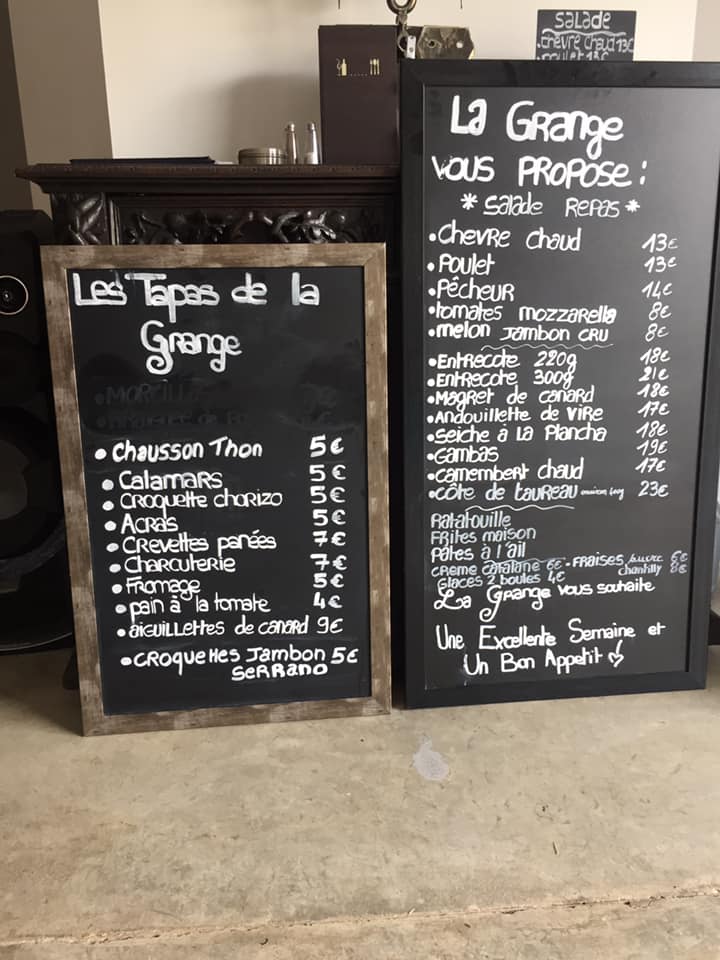 SALADE
chèvre chaud 13€
poulet 13€
Les Tapas de la
Grange
• Chausson Thon 5€
• Calamars 5€
• croquette chorizo 5€
• Acras 5€
• Crevettes panées 7€
• Charcuterie 7€
• Fromage 5€
• pain à la tomate 4€
• aiguillettes de canard 9€
• croquettes Jambon 5€
Serrano
La Grange
vous propose :
* Salade Repas *
• Chevre chaud 13€
• Poulet 13€
• Pêcheur 14€
• tomates mozzarella 8€
• melon Jambon cru 8€
• Entrecote 220g 18€
• Entrecote 300g 21€
• Magret de canard 18€
• Andouillette de Vire 17€
• Seiche à La Plancha 18€
• Gambas 19€
• camembert chaud 17€
• côte de taureau 23€
Ratatouille
Frites maison
Pâtes à l'ail
creme catalane 6€ - Fraises sucre 6€
Glaces 2 boules 4€ chantilly 8€
La Grange vous souhaite
Une Excellente Semaine et
Un Bon Appetit